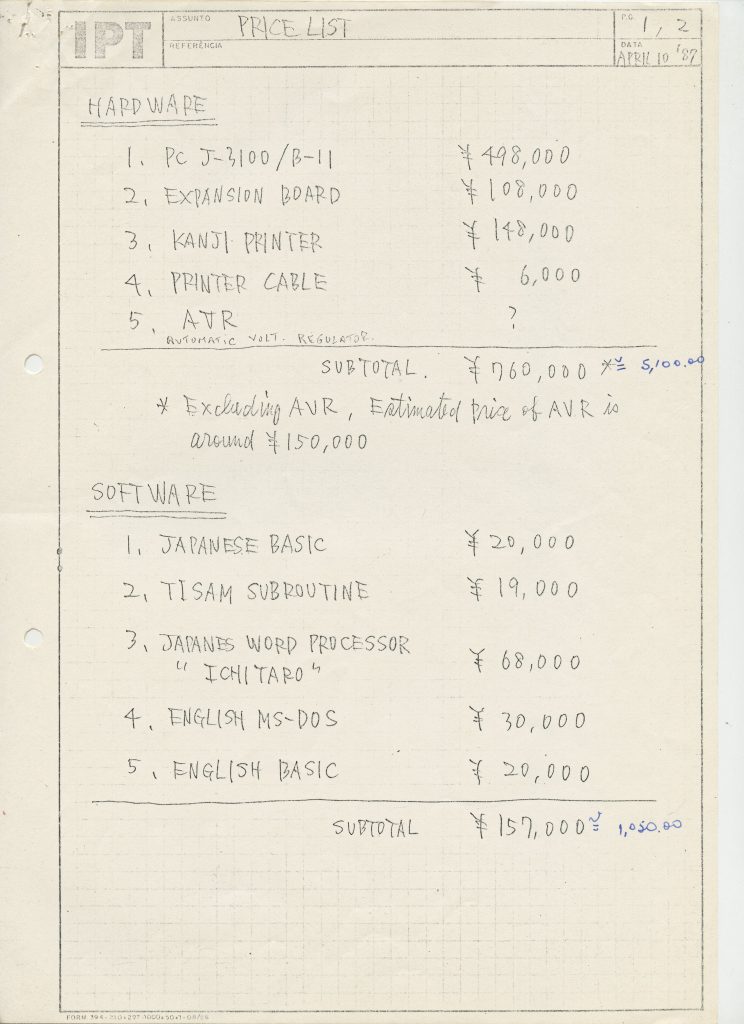 IPT
ASSUNTO PRICE LIST
REFERÊNCIA
P.G. 1, 2
DATA
APRIL 10 '87
HARDWARE
1. PC J-3100/B-11 ¥ 498,000
2. EXPANSION BOARD ¥ 108,000
3. KANJI PRINTER ¥ 148,000
4. PRINTER CABLE ¥ 6,000
5. AVR ?
AUTOMATIC VOLT. REGULATOR.
SUBTOTAL. ¥ 760,000 * ≅ 5,100.00
* Excluding AVR, Estimated price of AVR is
around ¥ 150,000
SOFTWARE
1. JAPANESE BASIC ¥ 20,000
2. TISAM SUBROUTINE ¥ 19,000
3. JAPANES WORD PROCESSOR
"ICHITARO" ¥ 68,000
4. ENGLISH MS-DOS ¥ 30,000
5. ENGLISH BASIC ¥ 20,000
SUBTOTAL ¥ 157,000 ≅ 1,050.00